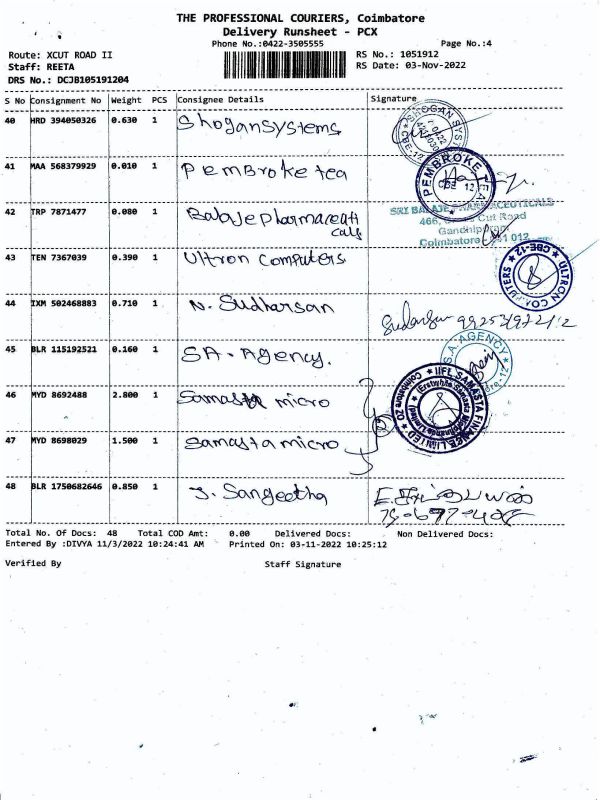 THE PROFESSIONAL COURIERS, Coimbatore
Delivery Runsheet - PCX
Phone No.:0422-3505555 Page No.:4
Route: XCUT ROAD II RS No.: 1051912
Staff: REETA RS Date: 03-Nov-2022
DRS No.: DCJB105191204
S No Consignment No Weight PCS Consignee Details Signature
40 HRD 394050326 0.630 1 Shogansystems
SHOGAN SYS
41 MAA 568379929 0.010 1 Pembroke tea
PEMBROKE TEA
CBE 12
42 TRP 7871477 0.080 1 Balaje pharmaceuti
cals
SRI BALAJE PHARMACEUTICALS
466, Cut Road
Gandhipuram
Coimbatore 012
43 TEN 7367039 0.390 1 Ultron Computers
ULTRON COMPUTERS CBE-12
44 IXM 502468883 0.710 1 N. Sudharsan
45 BLR 115192521 0.160 1 SA-Agency.
S.A. AGENCY
46 MYD 8692488 2.800 1 Samasta micro
IIFL SAMASTA FINANCE LIMITED
47 MYD 8698029 1.500 1 Samasta micro
48 BLR 1750682646 0.850 1 J. Sangeetha
Total No. Of Docs: 48 Total COD Amt: 0.00 Delivered Docs: Non Delivered Docs:
Entered By :DIVYA 11/3/2022 10:24:41 AM Printed On: 03-11-2022 10:25:12
Verified By Staff Signature